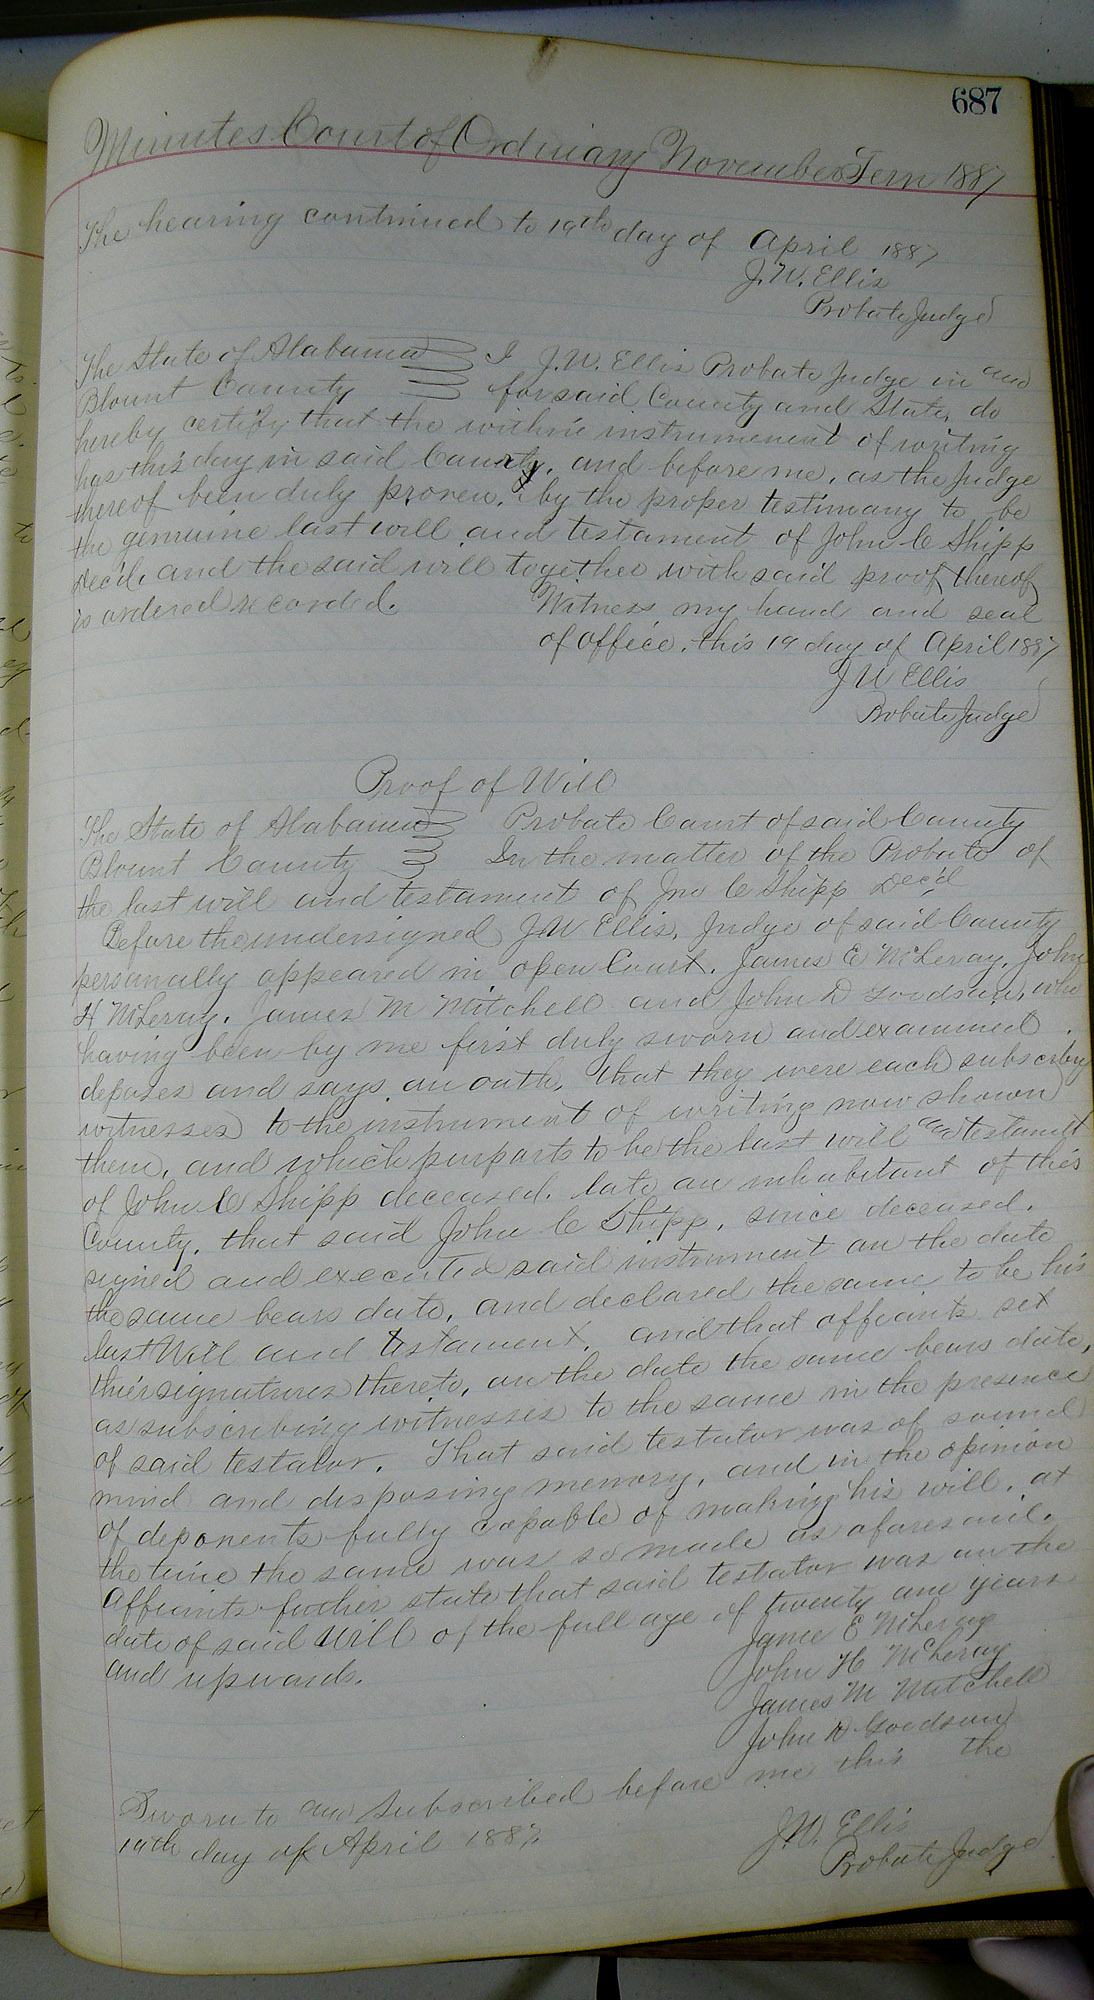 687
Minutes Court of Ordinary November Term 1887
The hearing continued to 19th day of April 1887
J. W. Ellis
Probate Judge
The State of Alabama I J. W. Ellis Probate Judge in and
Blount County for said County and State, do
hereby certify that the within instrumenent of writing
has this day in said County, and before me, as the Judge
thereof been duly proven, & by the proper testimony to be
the genuine last will and testament of John C Shipp
Dec'd. and the said will together with said proof thereof
is ordered recorded. Witness my hand and seal
of office, this 19 day of April 1887
J W Ellis
Probate Judge
Proof of Will
The State of Alabama Probate Court of said County
Blount County In the matter of the Probate of
the last will and testament of Jno C Shipp Dec'd
Before the undersigned J. W Ellis, Judge of said County
personally appeared in open Court, James E McLeroy, John
H McLeroy, James M Mitchell and John D Goodson, who
having been by me first duly sworn and examined
deposes and says on oath, that they were each subscribing
witnesses to the instrument of writing now shown
them, and which purports to be the last will and testamt
of John C Shipp deceased, late an inhabitant of this
County, that said John C Shipp, since deceased,
signed and executed said instrument on the date
the same bears date, and declared the same to be his
last Will and testament, and that affiants set
their signatures thereto, on the date the same bears date,
as subscribing witnesses to the same in the presence
of said testator. That said testator was of sound
mind and disposing memory, and in the opinion
of deponents fully capable of making his will, at
the time the same was so made as aforesaid.
Affiants futher state that said testator was on the
date of said Will of the full age of twenty one years
and upwards.
Jame E McLeroy
John H McLeroy
James M Mitchell
John D Goodson
Sworn to and subscribed before me this the
19th day of April 1887
J. W. Ellis
Probate Judge